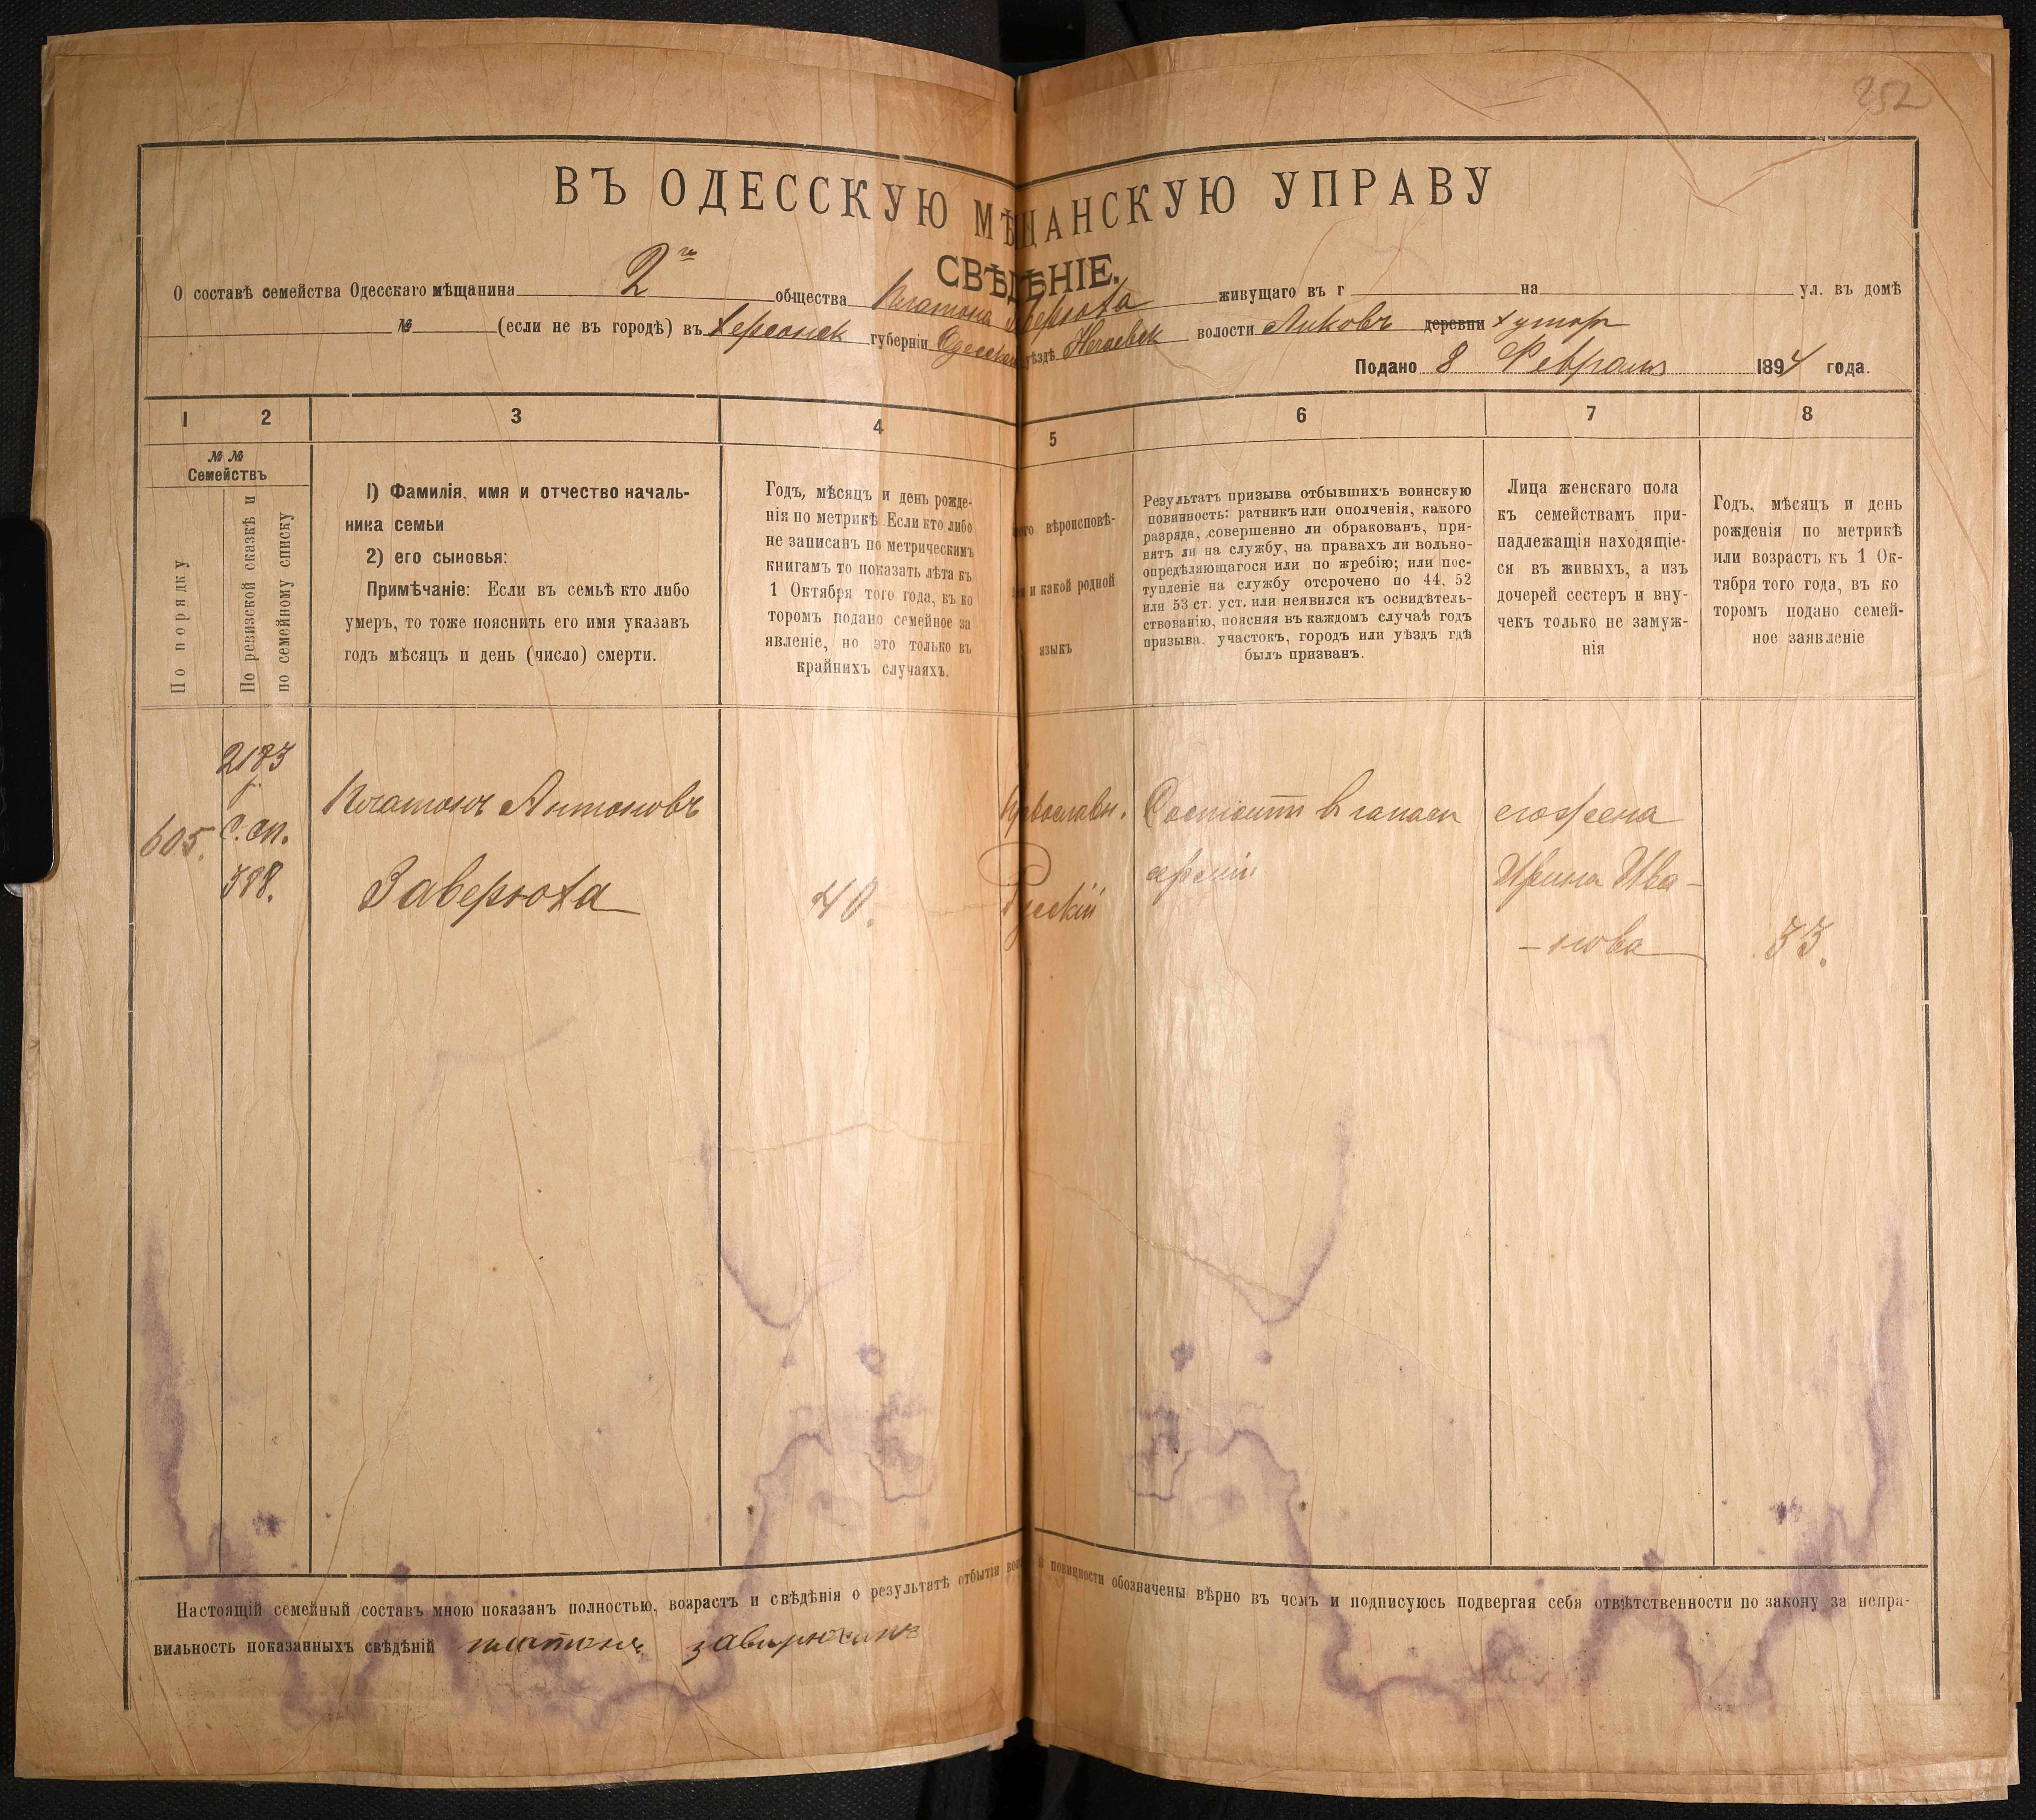 252
ВЪ ОДЕССКУЮ МѢЩАНСКУЮ УПРАВУ
СВѢДѢНІЕ.
О составѣ семейства Одесскаго мѣщанина 2го общества Платона Заверюха живущаго въ г на ул. въ домѣ
№ (если не въ городѣ) въ Херсонск губерніи Одесском уѣздѣ Нечаевск волости Ликовъ деревни хутор
Подано 8 Февраля 1894 года.
1 2 3 4 5 6 7 8
№ № Семействъ
По порядку
По ревизской сказкѣ и по семейному списку
1) Фамилія, имя и отчество началь-
ника семьи
2) его сыновья:
Примѣчаніе: Если въ семьѣ кто либо
умеръ, то тоже пояснить его имя указавъ
годъ мѣсяцъ и день (число) смерти.
Годъ, мѣсяцъ и день рожде-
нія по метрикѣ Если кто либо
не записанъ по метрическимъ
книгамъ то показать лѣта къ
1 Октября того года, въ ко
торомъ подано семейное за
явленіе, но это только въ
крайнихъ случаяхъ.
вѣроисповѣ-
и какой родной
языкъ
Результатъ призыва отбывшихъ воинскую
повинность: ратникъ или ополченія, какого
разряда, совершенно ли обракованъ, при-
нятъ ли на службу, на правахъ ли вольно-
опредѣляющагося или по жребію; или пос-
тупленіе на службу отсрочено по 44, 52
или 53 ст. уст. или неявился къ освидѣтель-
ствованію, поясняя въ каждомъ случаѣ годъ
призыва. участокъ, городъ или уѣздъ гдѣ
былъ призванъ.
Лица женскаго пола
къ семействамъ при-
надлежащія находящіе-
ся въ живыхъ, а изъ
дочерей сестеръ и вну-
чекъ только не замуж-
нія
Годъ, мѣсяцъ и день
рожденія по метрикѣ
или возрастъ къ 1 Ок-
тября того года, въ ко
торомъ подано семей-
ное заявленіе
2183
605. с. сп.
388.
Платонъ Антоновъ
Заверюха
40.
Православн.
Русскій
Состоитъ в запасѣ
арміи
его жена
Ирина Ива-
-нова
33.
Настоящій семейный составъ мною показанъ полностью, возрастъ и свѣдѣнія о результатѣ отбытія воинской повинности обозначены вѣрно въ чемъ и подписуюсь подвергая себя отвѣтственности по закону за непра-
вильность показанныхъ свѣдѣній платонъ